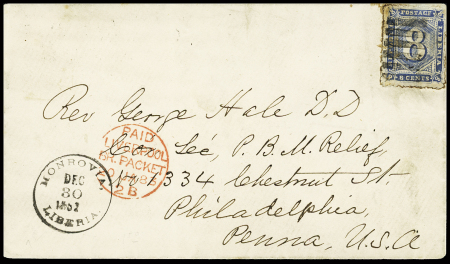 POSTAGE
LIBERIA
8
8 CENTS
Rev George Hale D.D
Cor Séc, P. B. M. Relief,
No 1334 Chestnut St.
Philadelphia,
Penna, U.S.A
PAID
LIVERPOOL
BR. PACKET
2B
MONROVIA
DEC
30
LIBERIA